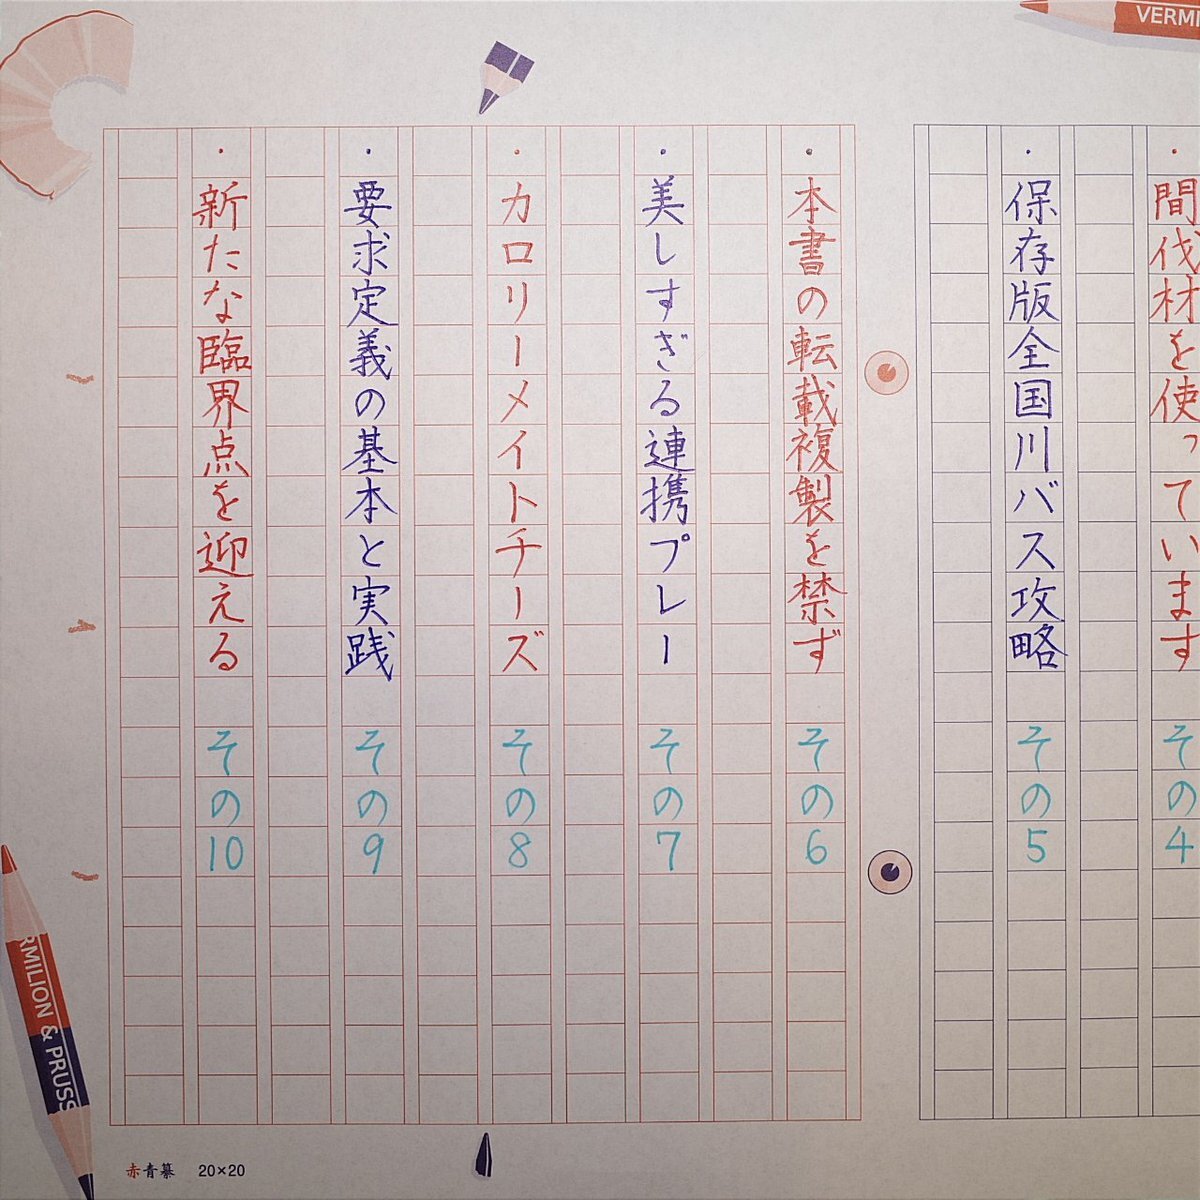 VERMI
間伐材を使っています その4
・保存版全国川バス攻略 その5
・本書の転載複製を禁ず その6
・美しすぎる連携プレー その7
・カロリーメイトチーズ その8
・要求定義の基本と実践 その9
・新たな臨界点を迎える その10
RMILION & PRUSS
赤青纂 20×20